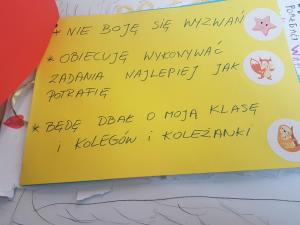 * NIE BOJĘ SIĘ WYZWAŃ
* OBIECUJĘ WYKONYWAĆ
ZADANIA NAJLEPIEJ JAK
POTRAFIĘ
* BĘDĘ DBAŁ O MOJĄ KLASĘ
I KOLEGÓW I KOLEŻANKI